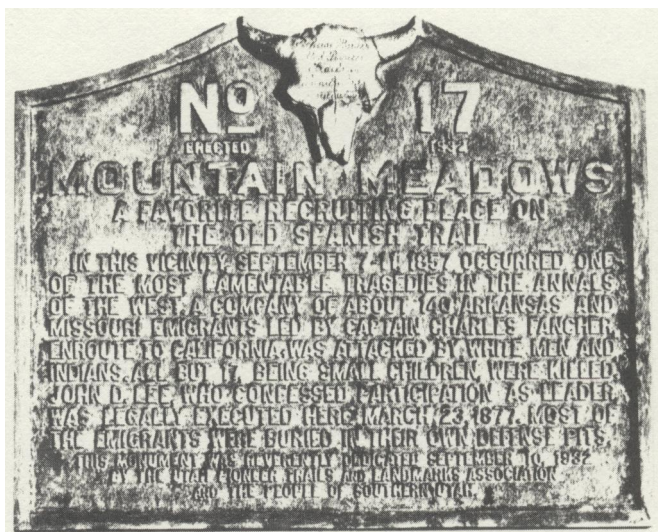 No 17
ERECTED 1932
MOUNTAIN MEADOWS
A FAVORITE RECRUITING PLACE ON
THE OLD SPANISH TRAIL
IN THIS VICINITY, SEPTEMBER 7-11, 1857 OCCURRED ONE
OF THE MOST LAMENTABLE TRAGEDIES IN THE ANNALS
OF THE WEST. A COMPANY OF ABOUT 140 ARKANSAS AND
MISSOURI EMIGRANTS LED BY CAPTAIN CHARLES FANCHER,
ENROUTE TO CALIFORNIA, WAS ATTACKED BY WHITE MEN AND
INDIANS. ALL BUT 17, BEING SMALL CHILDREN, WERE KILLED.
JOHN D. LEE, WHO CONFESSED PARTICIPATION AS LEADER,
WAS LEGALLY EXECUTED HERE MARCH 23, 1877. MOST OF
THE EMIGRANTS WERE BURIED IN THEIR OWN DEFENSE PITS.
THIS MONUMENT WAS REVERENTLY DEDICATED SEPTEMBER 10, 1932
BY THE UTAH PIONEER TRAILS AND LANDMARKS ASSOCIATION
AND THE PEOPLE OF SOUTHERN UTAH.